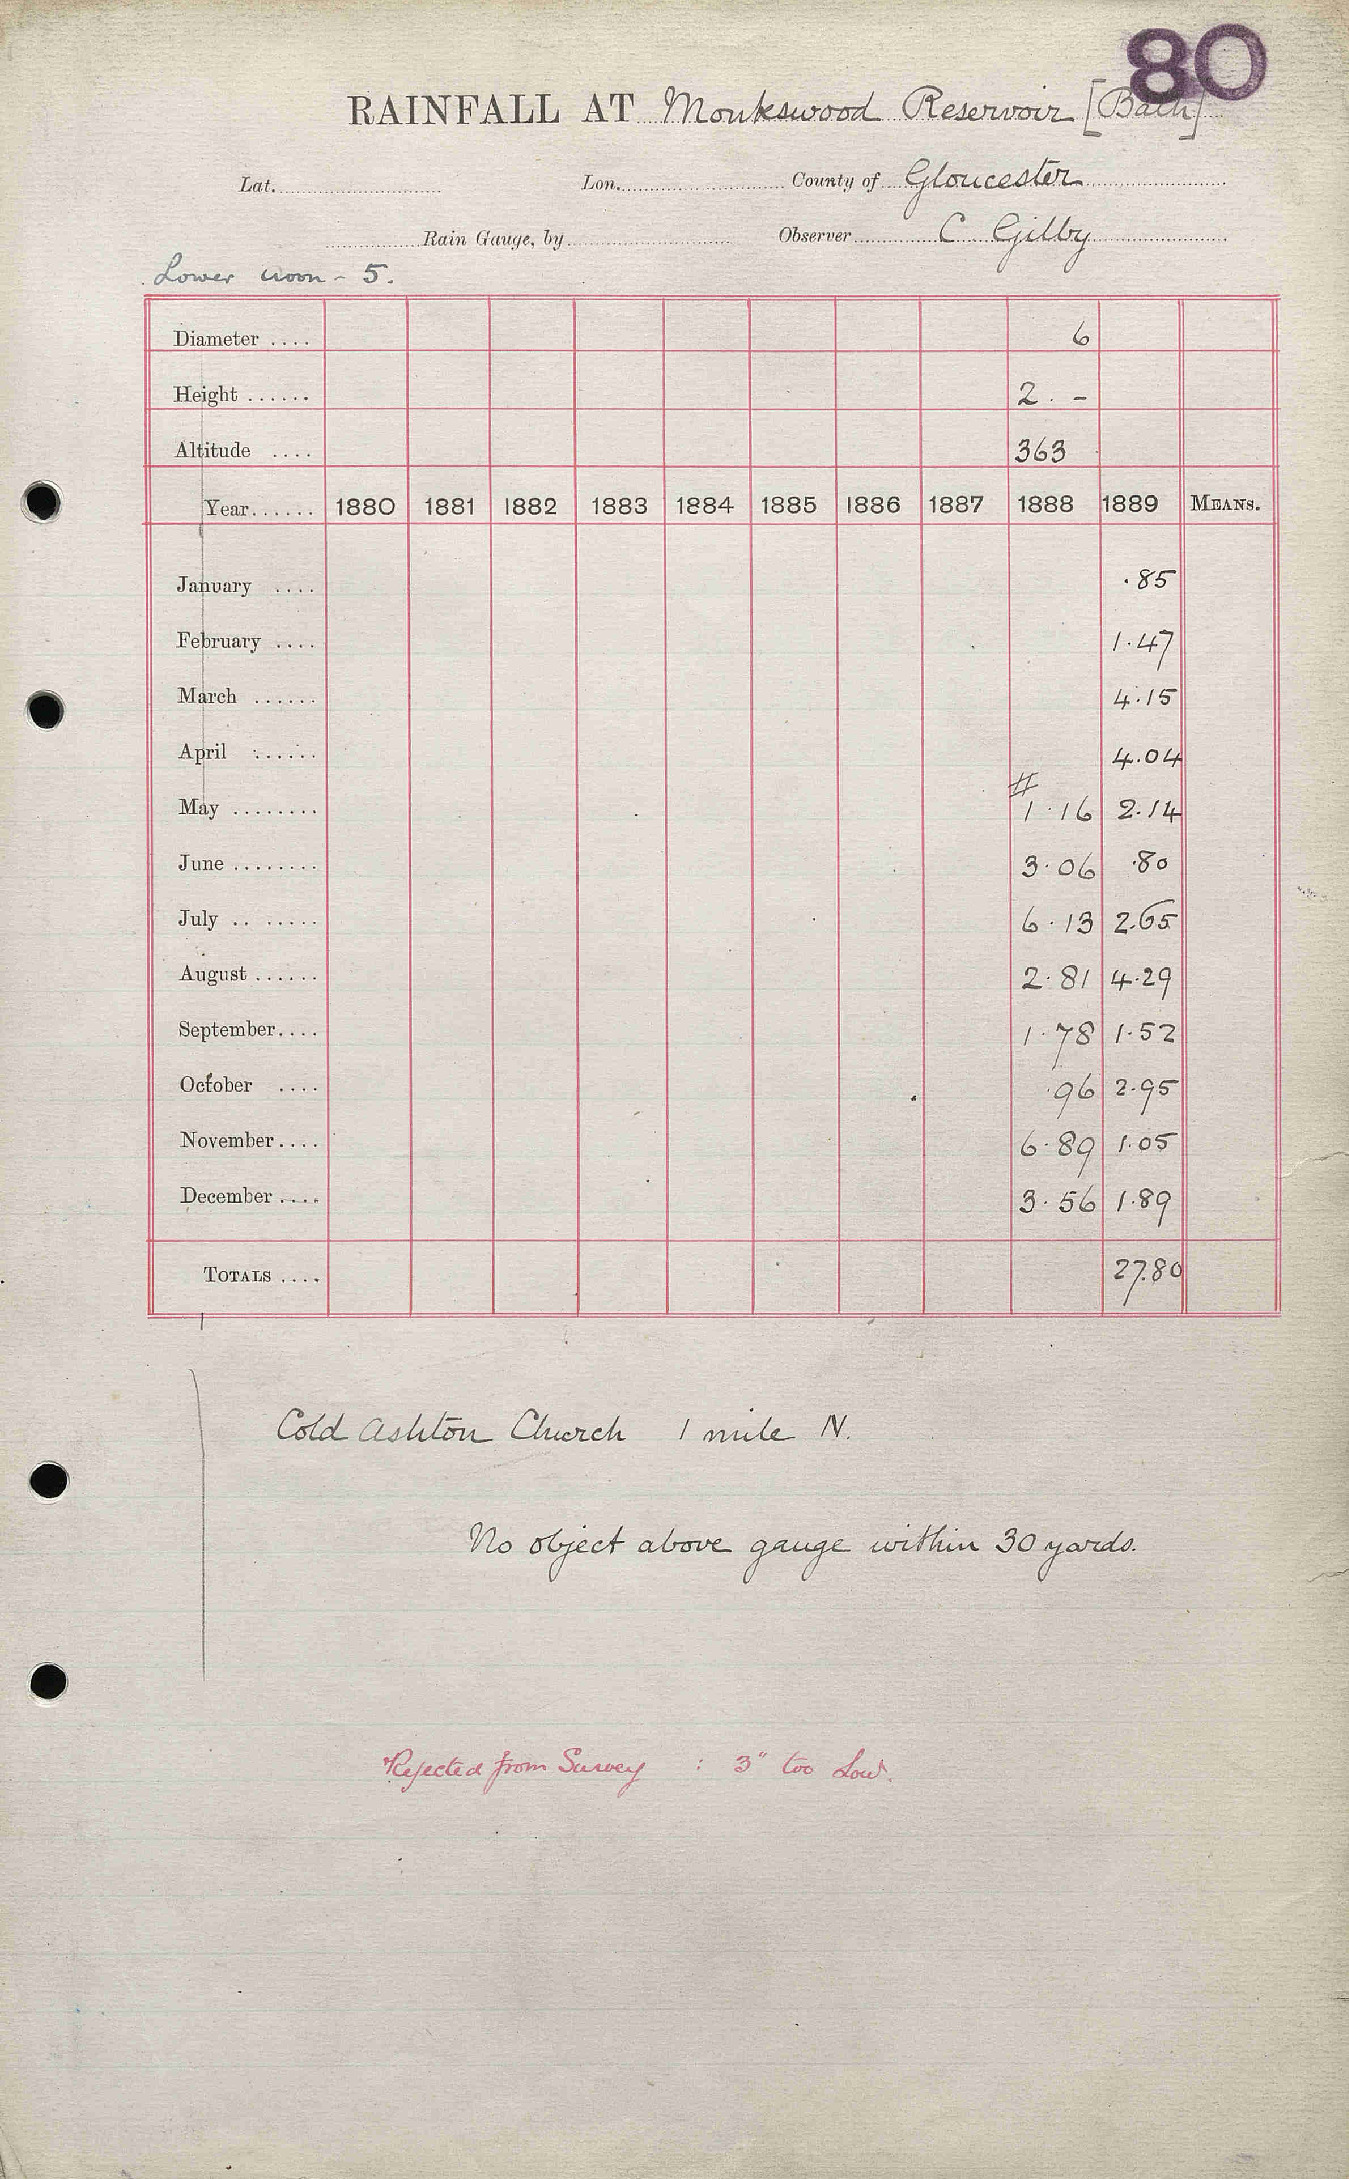 80
RAINFALL AT Monkswood Reservoir [Bath]
Lat. Lon. County of Gloucester
Rain Gauge, by Observer C Gilby
Lower Avon - 5.
Diameter .... 6
Height ...... 2. -
Altitude .... 363
Year...... 1880 1881 1882 1883 1884 1885 1886 1887 1888 1889 MEANS.
January .... .85
February .... 1.47
March ...... 4.15
April ...... 4.04
#
May ........ 1.16 2.14
June ........ 3.06 .80
July .. ...... 6.13 2.65
August ...... 2.81 4.29
September.... 1.78 1.52
October .... .96 2.95
November.... 6.89 1.05
December .... 3.56 1.89
TOTALS .... 27.80
Cold Ashton Church 1 mile N.
No object above gauge within 30 yards.
Rejected from Survey : 3" too Low.